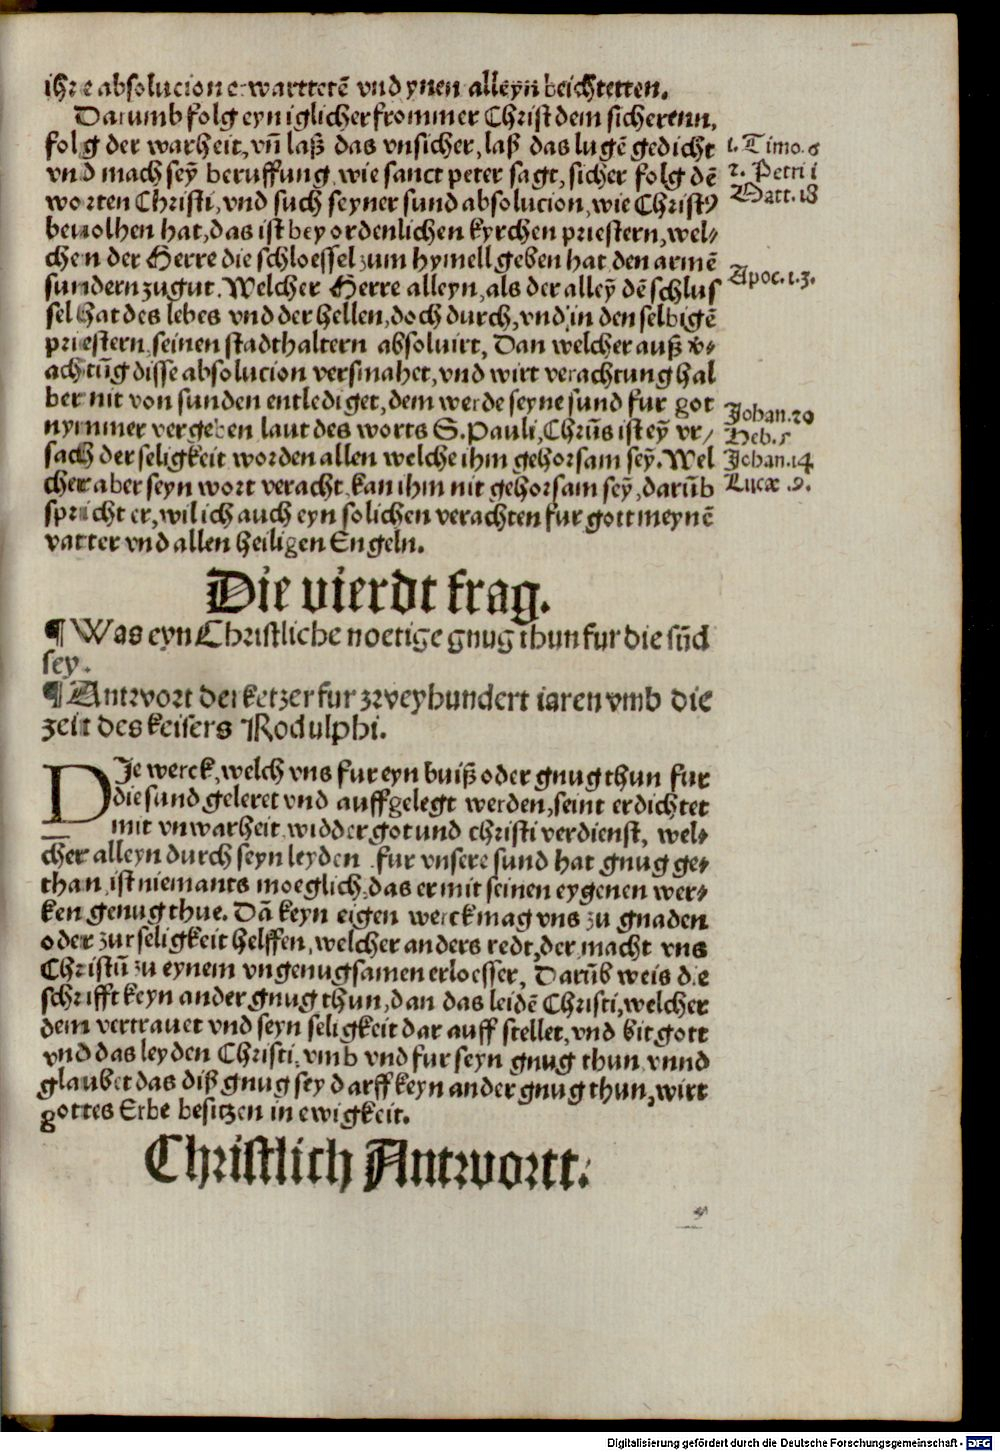 ihre absolucion erwarttetē vnd ynen alleyn beichtetten.
Darumb folg eyn iglicher frommer Christ dem sicherenn,
folg der warheit, vñ laß das vnsicher, laß das lugē gedicht
vnd mach seȳ beruffung, wie sanct peter sagt, sicher folg dē
worten Christi, vnd such seyner sund absolucion, wie Christꝰ
beuolhen hat, das ist bey ordenlichen kyrchen priestern, wel⸗
chen der Herre die schloessel zum hymell geben hat, den armē
sundern zugut. Welcher Herre alleyn, als der alleȳ dē schlus
sel hat des lebēs vnd der hellen, doch durch, vnd in den selbigē
priestern, seinen stadthaltern absoluirt, Dan welcher auß v̄⸗
achtūg disse absolucion versmahet, vnd wirt verachtung hal
ber nit von sunden entlediget, dem werde seyne sund fur got
nymmer vergeben laut des worts S. Pauli, Chrūs ist eȳ vr/
sach der seligkeit worden allen welche ihm gehorsam seȳ. Wel
cher aber seyn wort veracht, kan ihm nit gehorsam seȳ, darūb
spricht er, wil ich auch eyn solichen verachten fur gott meynē
vatter vnd allen heiligen Engeln.
1. Timo. 6
2. Petri 1
Matt. 18
Apoc. 1. 3.
Johan. 20
Heb. 5
Johan. 14
Lucæ .9.
Die vierdt frag.
¶ Was eyn Christliche noetige gnug thun fur die sūd
sey.
¶ Antwort der ketzer fur zweyhundert iaren vmb die
zeit des keisers Rodulphi.
DIe werck, welch vns fur eyn buiß oder gnug thun fur
die sund geleret vnd auffgelegt werden, seint erdichtet
mit vnwarheit, widder got und christi verdienst, wel⸗
cher alleyn durch seyn leyden fur vnsere sund hat gnug ge⸗
than, ist niemants moeglich, das er mit seinen eygenen wer⸗
ken genug thue. Dā keyn eigen werck mag vns zu gnaden
oder zur seligkeit helffen, welcher anders redt, der macht vns
Christū zu eynem vngenugsamen erloesser, Darūb weis die
schrifft keyn ander gnug thun, dan das leidē Christi, welcher
dem vertrauet vnd seyn seligkeit dar auff stellet, vnd bit gott
vnd das leyden Christi, vmb vnd fur seyn gnug thun vnnd
glaubet das diß gnug sey darff keyn ander gnug thun, wirt
gottes Erbe besitzen in ewigkeit.
Christlich Antwortt.
Digitalisierung gefördert durch die Deutsche Forschungsgemeinschaft - DFG